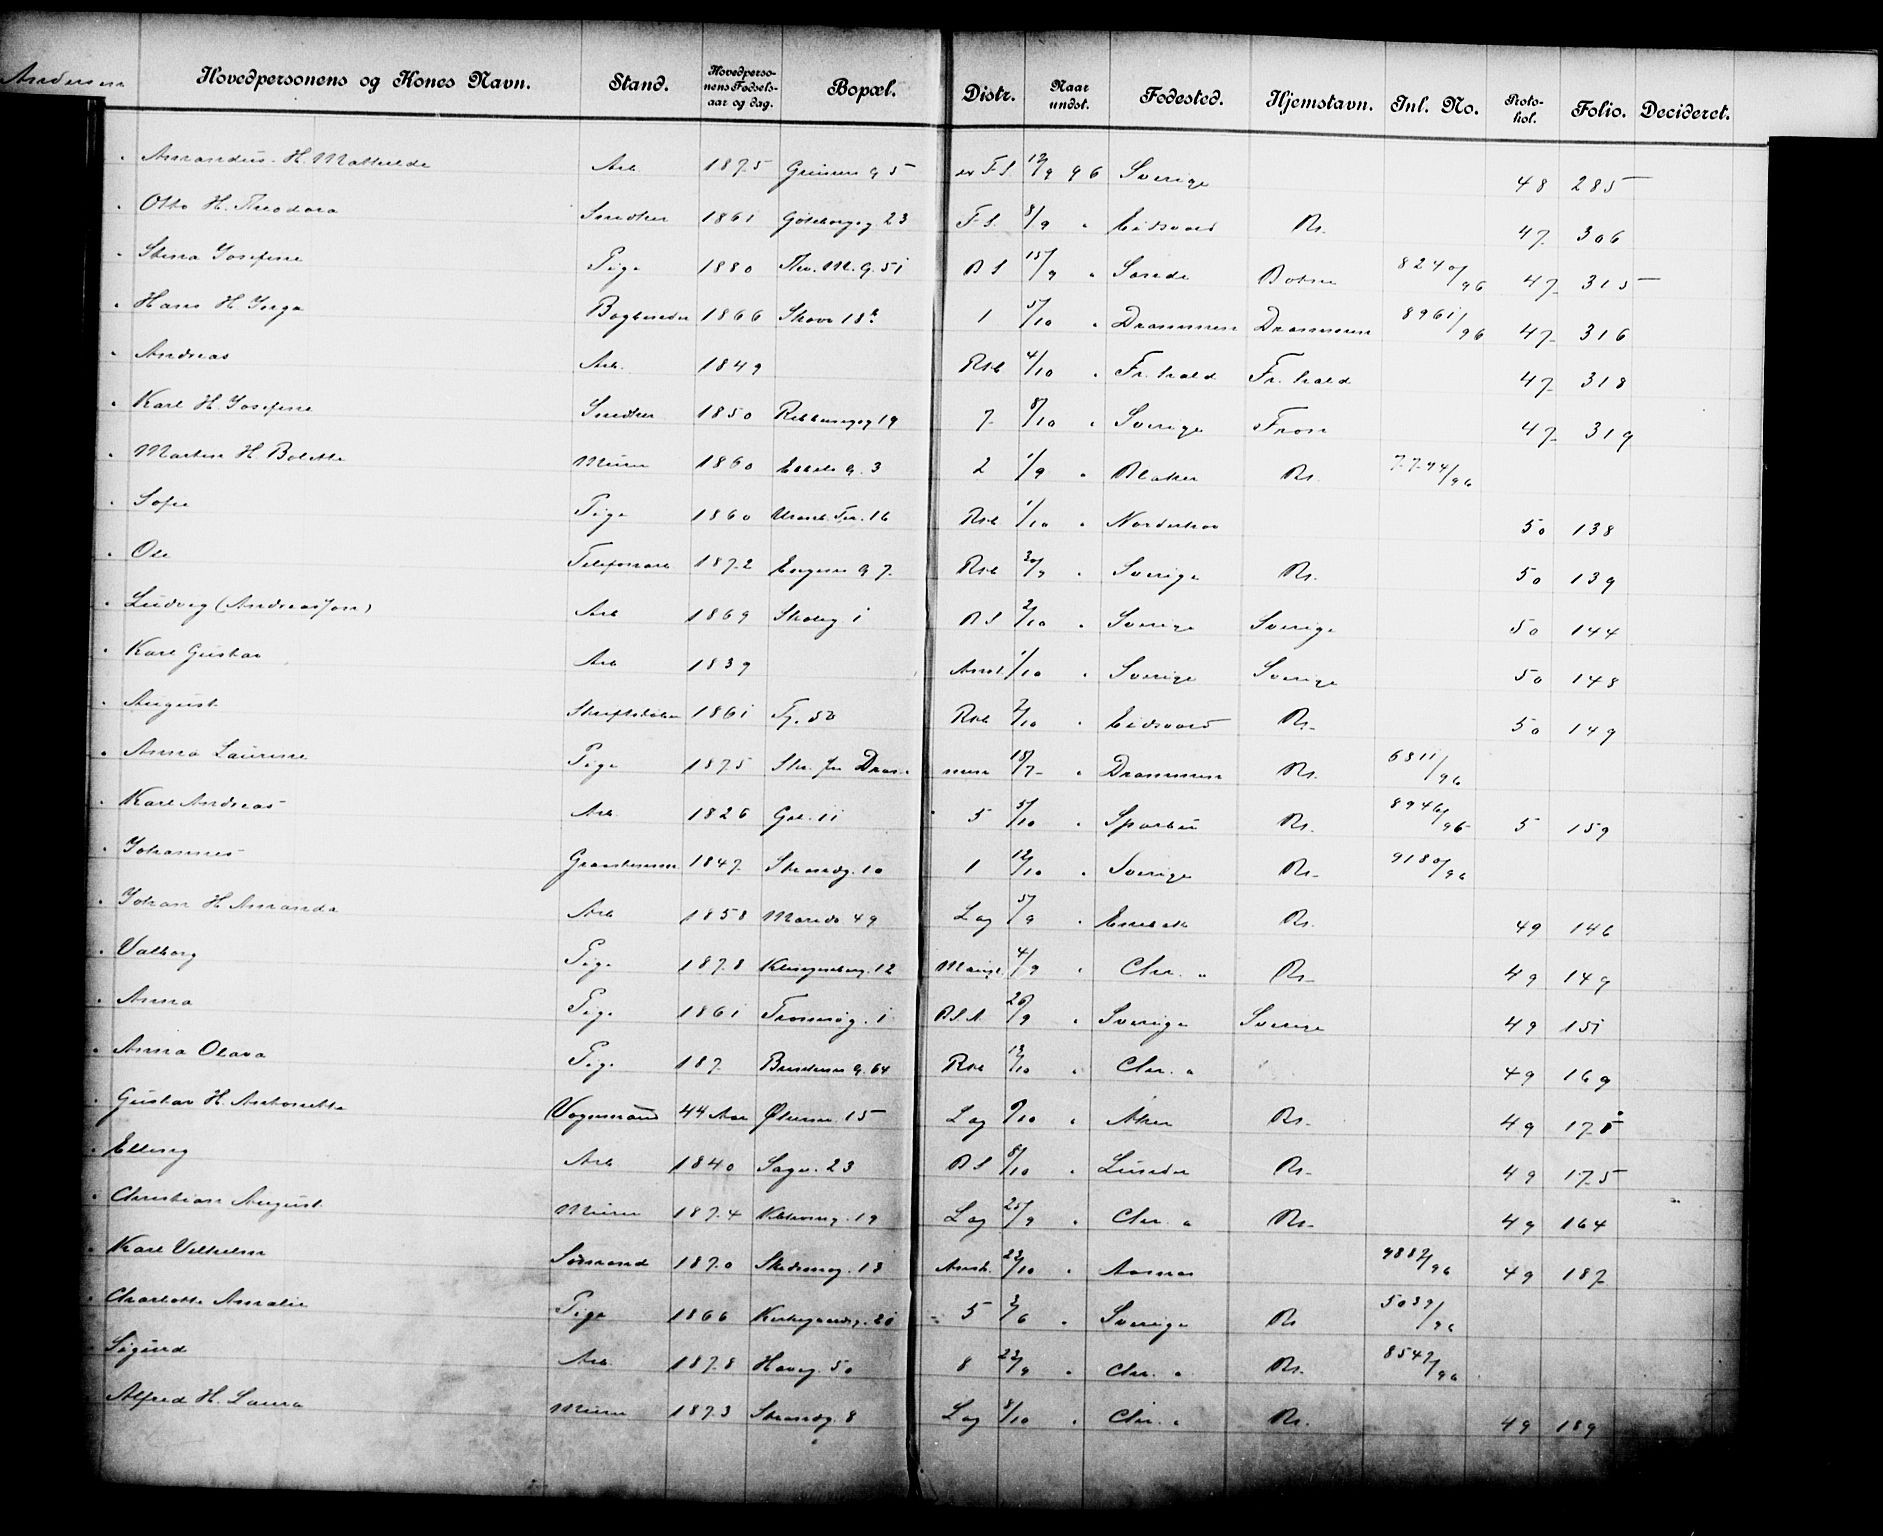 Andersen Hovedpersonens og Kones Navn. Stand. Hovedperso-nens Fødsels-aar og dag. Bopæl. Distr. Naar undst. Fødested. Hjemstavn. Inl. No. Proto-kol. Folio. Decideret.
Amandus H. Mathilde Arb 1875 Grüners g 5 12/9 96 Sverige 48 285
Otto H. Theodora Smedker 1861 Göteborgsg 23 F.S. 8/9 " Eidsvold Rs. 47 306
Stina Josefine Pige 1880 Thv. M. g. 51 BS 15/9 " Sande Botne 8240/96 47 315
Hans H Inga Bogbinder 1866 Skovv 18 1 5/10 " Drammen Drammen 8961/96 47 316
Andreas Arb. 1849 Rst 4/10 " Fr.hald Fr.hald 47 318
Karl H. Josefine 1850 19 7 8/10 " Sverige 47 319
Martin H. Bolette Murer 1860 g. 3 2 1/9 " Blaker Rs. 7794/96
Sofie Pige 1860 16 Rst 1/10 " Norderhov 50 138
Ole Telefonarb 1872 Engens g 7 Rst 30/9 " Sverige Rs. 50 139
Ludvig (Andreasson) Arb 1869 Skoleg 1 BS 2/10 " Sverige Sverige 50 144
Karl Gustav Arb 1839 Anst 1/10 " Sverige Sverige 50 148
August Skriftstøber 1861 Rst 2/10 " Eidsvold Rs. 50 149
Anna Laurine Pige 1875 Str. fra Dram- men 18/7 " Drammen Rs. 6311/96
Karl Andreas Arb. 1826 Gol. 11 5 5/10 " Sparbu Rs. 8946/96 5 159
Johannes 1847 Strandg. 10 1 12/10 " Sverige Rs. 9180/96
Johan H Amanda Arb 1858 Marido 49 Lag 5/9 " Enebak Rs. 49 146
Valborg Pige 1878 Klingenberg. 12 Mangl. 4/9 " Chr. a Rs. 49 149
Anna Pige 1861 Tromsøg. 1 B.S.A. 26/9 " Sverige Sverige 49 151
Anna Olava Pige 187 g. 64 Rst 13/10 " Chr. a 49 169
Gustav H. Antonette Vognmand 44 Aar 15 Lag 9/10 " Aker Rs. 49
Elling Arb 1840 Sagv. 23 BS 8/10 " Lunder Rs. 49 175
Christian August Murer 1874 19 Lag 25/9 " Chr. a Rs. 49 164
Karl Vilhelm Sømand 1870 18 Anst. 22/10 " Rs. 9882/96 49 187
Charlotte Amalie Pige 1866 Kirkegaardsg. 20 5 3/6 " Sverige Rs 5039/96
Sigurd Arb 1878 Haveg. 50 8 22/9 " Chr. a Rs. 8547/96
Alfred H. Laura Murer 1873 Strandg 8 Lag 8/10 " Chr. a Rs. 49 189